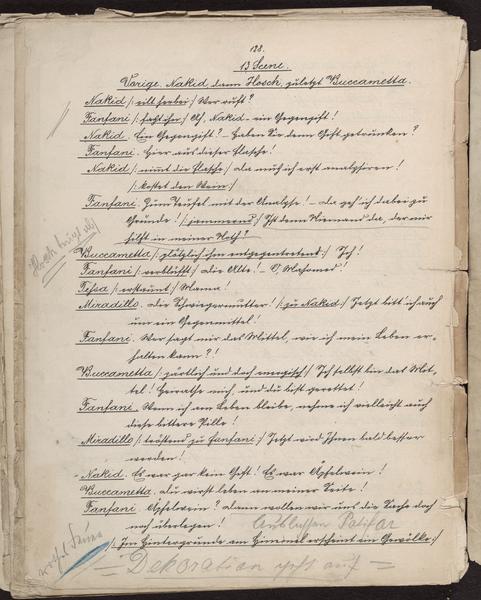 128.
13 Scene.
Vorige. Nakid dann Hosch, zuletzt Buccametta.
Nakid /: eilt herbei :/ Wer ruft?
Fanfani /: faßt ihn :/ Ah, Nakid – ein Gegengift!
Nakid. Ein Gegengift? – Haben Sie denn Gift getrunken?
Fanfani. Hier aus dieser Flasche!
Nakid /: nimmt die Flasche :/ da muß ich erst analysiren!
/: kostet den Wein :/
Fanfani. Zum Teufel mit der Analyse! – da geh' ich dabei zu
Grunde! /: jammernd :/ Ist denn Niemand da, der mir
hilft in meiner Noth?
Buccametta /: plötzlich ihm entgegentretend :/ Ich!
Fanfani /: verblüfft :/ die Alte! – O, Mahomed!
Tessa /: erstaunt :/ Mama!
Miradillo. die Schwiegermutter! /: zu Nakid :/ Jetzt bitt' ich auch
um ein Gegenmittel!
Fanfani. Wer sagt mir das Mittel, wie ich mein Leben er-
halten kann?!
Buccametta /: zärtlich und doch energisch :/ Ich selbst bin das Mit-
tel! Heirathe mich, und du bist gerettet!
Fanfani. Wenn ich am Leben bleibe, nehme ich vielleicht auch
diese bittere Pille!
Miradillo /: tröstend zu Fanfani :/ Jetzt wird Ihnen bald besser
werden!
Nakid. Es war gar kein Gift! Es war Äpfelwein!
Buccametta. du wirst leben an meiner Seite!
Fanfani. Äpfelwein? dann wollen wir uns die Sache doch
noch überlegen!
/: Im Hintergrunde am Himmel erscheint ein Gewölke :/
= Dekoration geht auf =